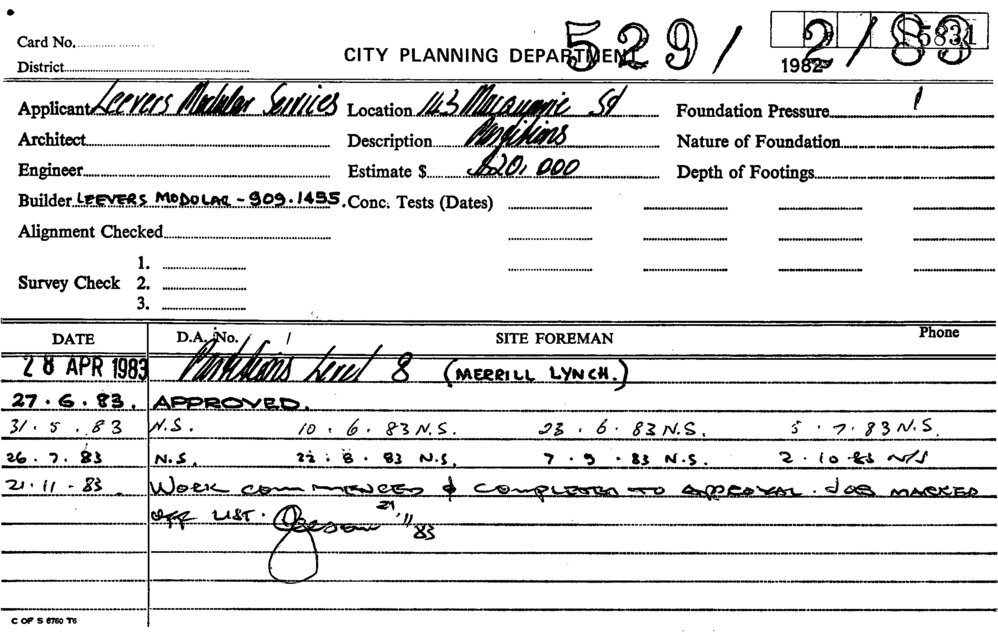 Card No.
CITY PLANNING DEPARTMENT 529/2/83
1982 5831
District
Applicant Leevers Modular Services Location 143 Macquarie St Foundation Pressure
Architect Description Partitions Nature of Foundation
Engineer Estimate $ $20,000 Depth of Footings
Builder LEEVERS MODULAR - 909.1495. Conc. Tests (Dates)
Alignment Checked
1.
Survey Check 2.
3.
DATE D.A. No. SITE FOREMAN Phone
28 APR 1983 Partitions Level 8 (MERRILL LYNCH.)
27.6.83. APPROVED.
31.5.83 N.S. 10.6.83 N.S. 23.6.83 N.S. 5.7.83 N.S.
26.7.83 N.S. 22.8.83 N.S. 7.9.83 N.S. 2.10.83 N/S
21.11.83. WORK COMMENCED & COMPLETED TO APPROVAL. JOB MARKED
OFF LIST. 21.11.83
C OF S 6760 T6